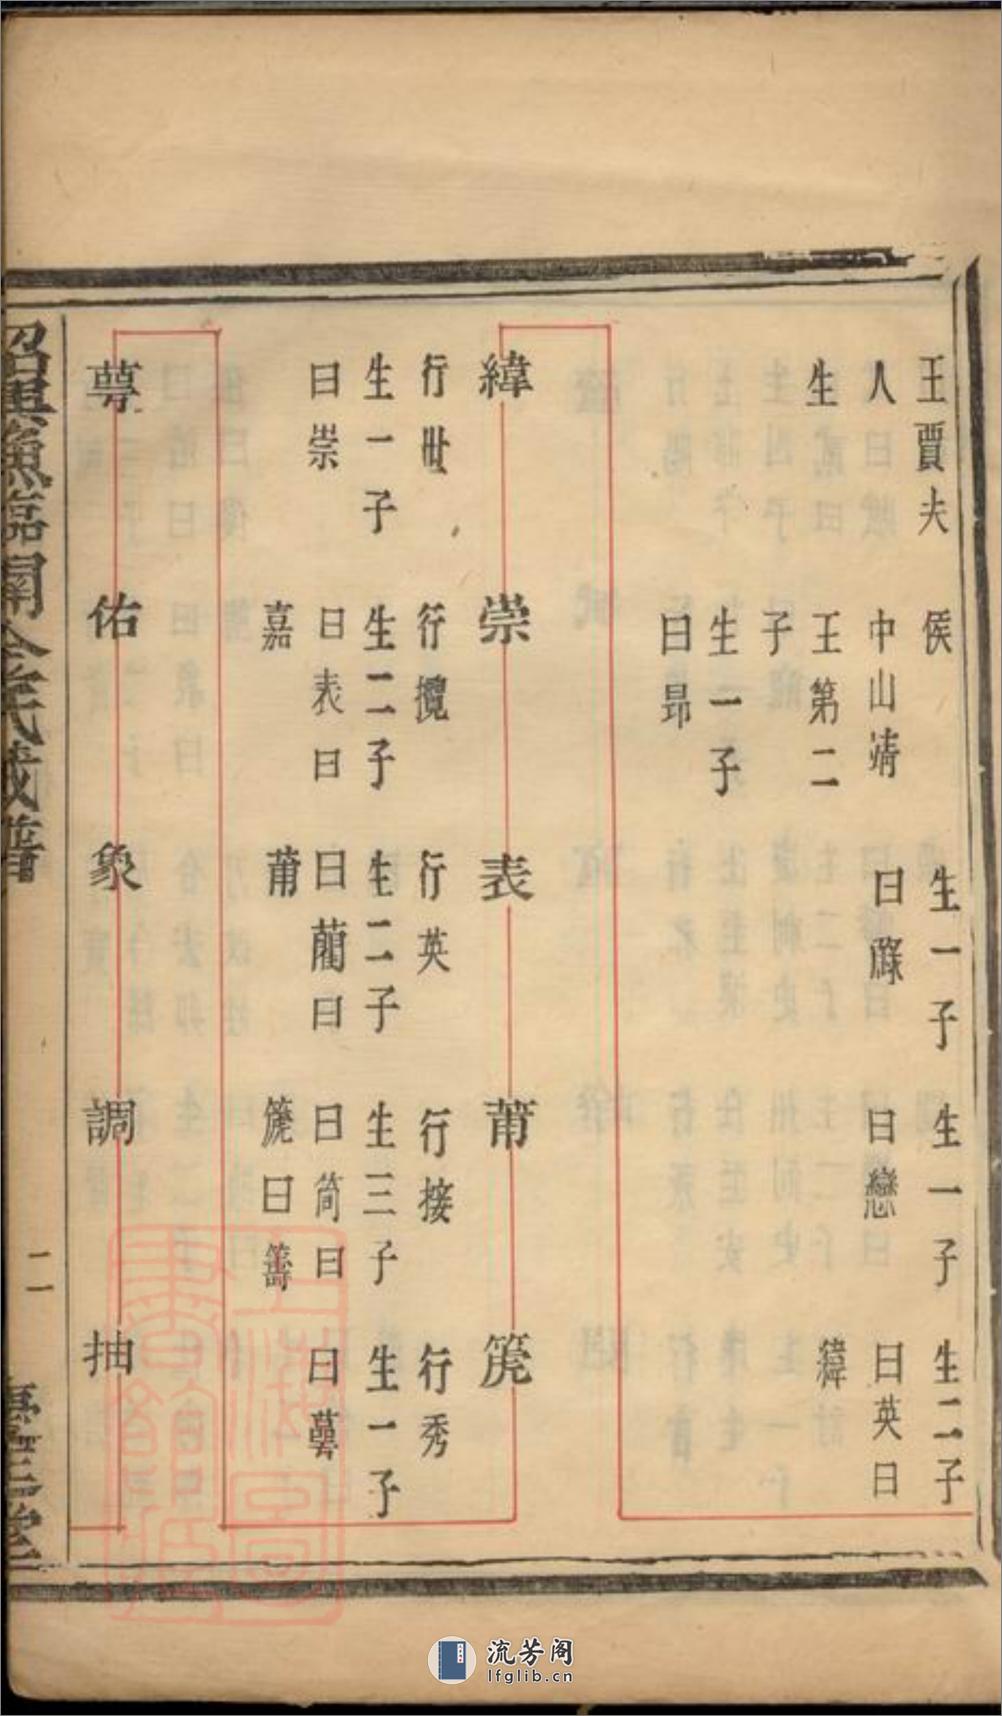 王賈夫
人
生
侯
中山靖
王第二
子
生一子
曰昻
生一子
曰
生一子
曰戀
生二子
曰英曰
緯
緯
行世
生一子
曰崇
崇
行攬
生二子
曰表曰
嘉
表
行英
生二子
曰藺曰
莆
莆
行接
生三子
曰简曰
篪曰
籌
篪
行秀
生一子
曰
萼
佑
象
調
抽
紹興漁臨關金氏宗譜
二
流芳阁
lfglib.cn